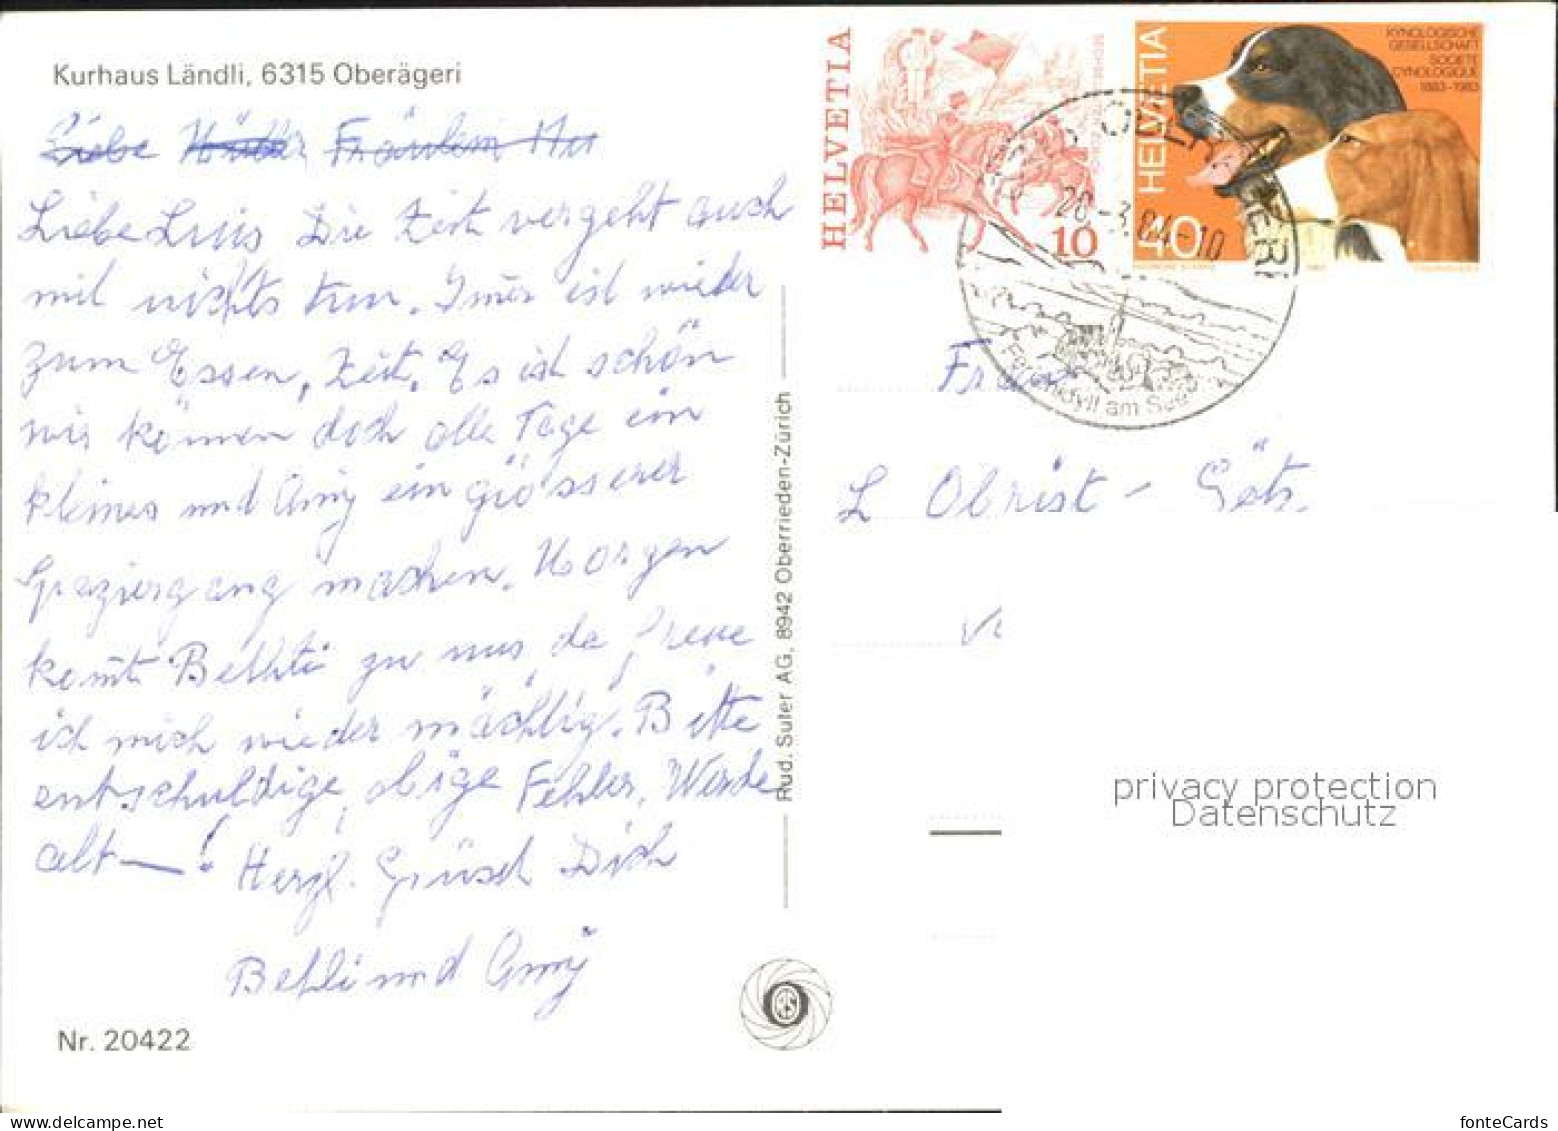 Kurhaus Ländli, 6315 Oberägeri
Liebe Fräulein
Liebe Luis Die Zeit vergeht auch
mit nichts tun. Imer ist wieder
zum Essen, Zeit. Es ist schön
wir können doch alle Tage ein
kleines und Amy ein grösserer
Spaziergang machen. Morgen
komt Bethli zu uns, da freue
ich mich wieder mächtig. Bitte
entschuldige, obige Fehler, Werde
alt—!
Herzl. Grüsst Dich
Bethli und Amy
Nr. 20422
Rud. Suter AG, 8942 Oberrieden-Zürich
HELVETIA
10
HELVETIA
40
KYNOLOGISCHE
GESELLSCHAFT
SOCIETE
CYNOLOGIQUE
1883-1983
6315 OBERÄGERI
20.-3.84-10
Ferienidyll am See
Frau
L Obrist - Götz.
privacy protection
Datenschutz
fonteCards